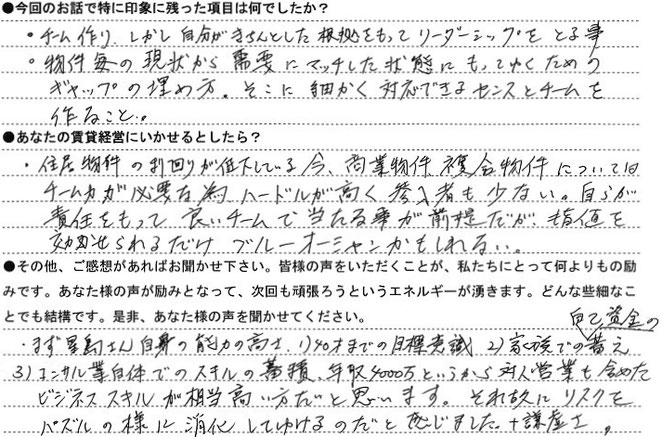 ●今回のお話で特に印象に残った項目は何でしたか?
・チーム作り、しかし自分がきちんとした根拠をもってリーダーシップをとる事
・物件毎の現状から需要にマッチした状態にもってゆくための
ギャップの埋め方。そこに細かく対応できるセンスとチームを
作ること。
●あなたの賃貸経営にいかせるとしたら?
・住居物件の利回りが低下している今、商業物件、複合物件については
チーム力が必要な為、ハードルが高く参入者も少ない。自らが
責任をもって良いチームで当たる事が前提だが、指値を
効かせられるだけブルーオーシャンかもしれない。
●その他、ご感想があればお聞かせ下さい。皆様の声をいただくことが、私たちにとって何よりもの励
みです。あなた様の声が励みとなって、次回も頑張ろうというエネルギーが湧きます。どんな些細なこ
とでも結構です。是非、あなた様の声を聞かせてください。
自己資金の
・まず星島さん自身の能力の高さ、1)40才までの目標意識 2)家族での蓄え
3)コンサル業自体でのスキルの蓄積、年収4000万というから対人営業も含めた
ビジネススキルが相当高い方だと思います。それ故にリスクを
パズルの様に消化してゆけるのだと感じました。+謙虚さ。